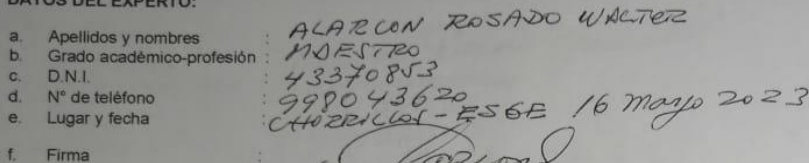 DATOS DEL EXPERTO:
a. Apellidos y nombres : ALARCON ROSADO WALTER
b. Grado académico-profesión : MAESTRO
c. D.N.I. : 43370853
d. N° de teléfono : 998043620
e. Lugar y fecha : CHORRILLOS - ESGE 16 mayo 2023
f. Firma :